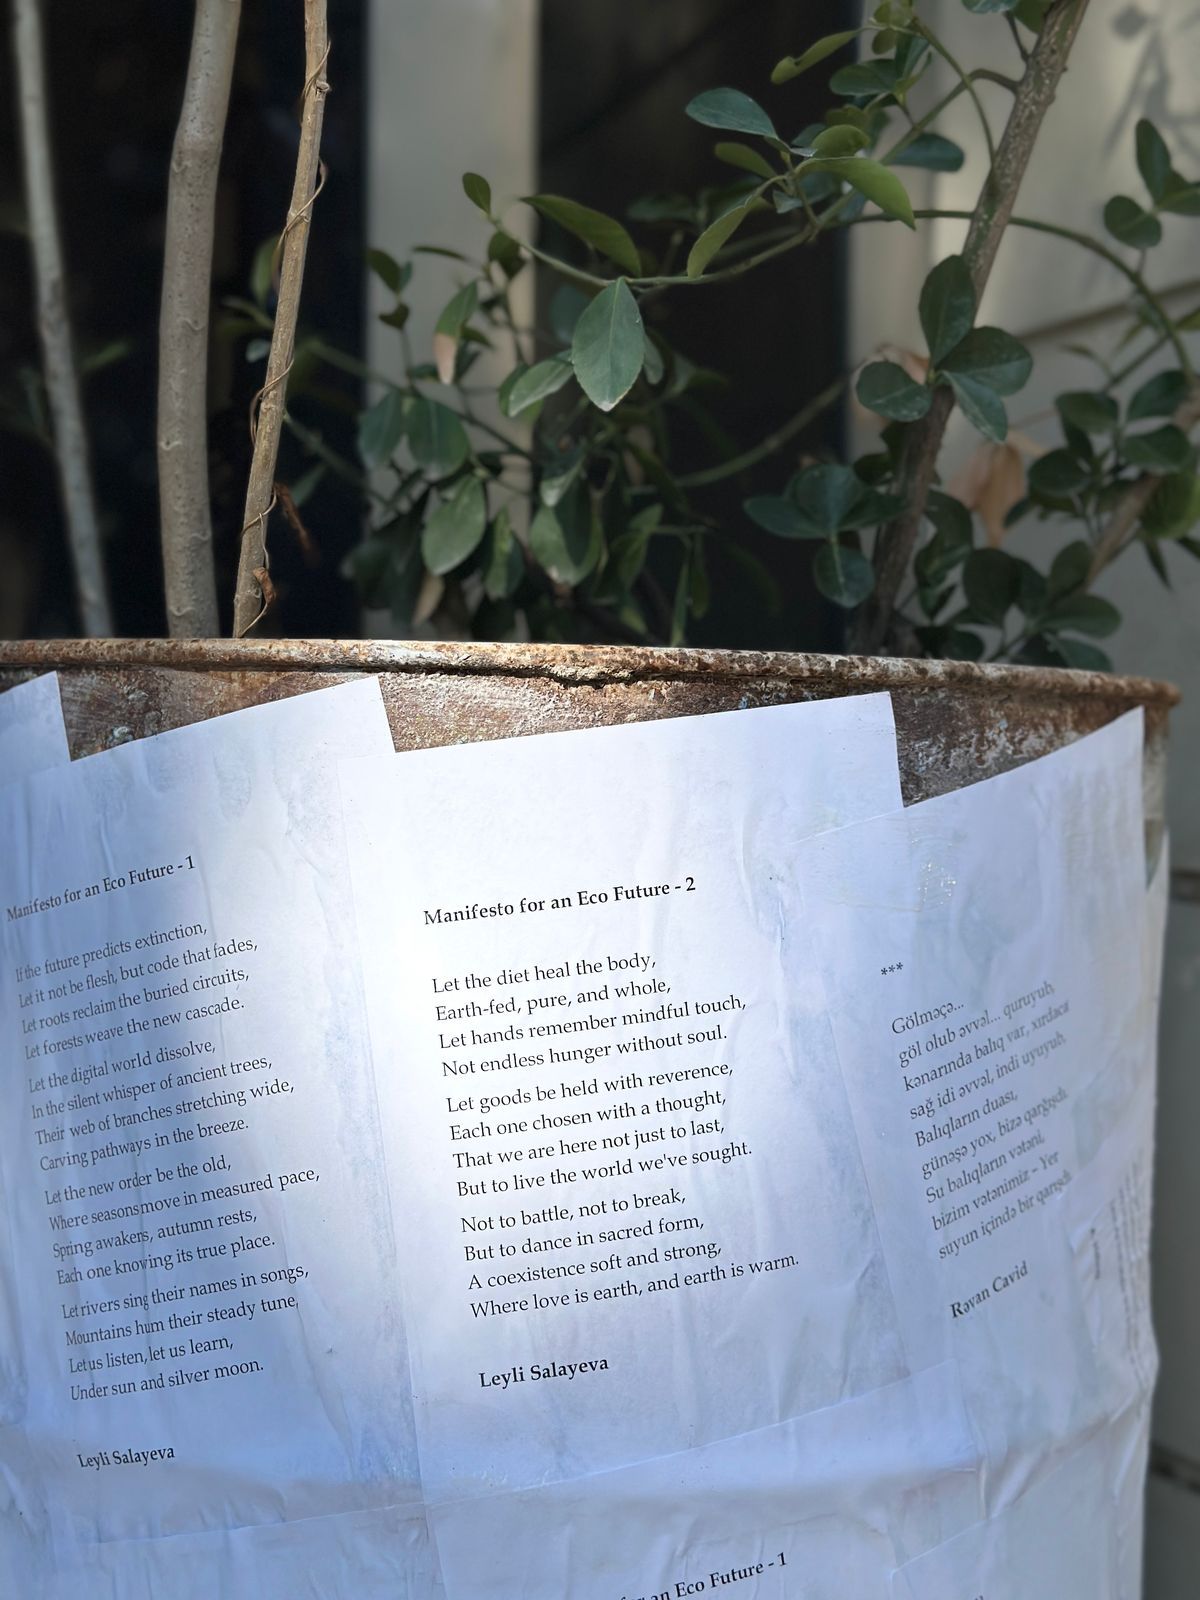 Manifesto for an Eco Future - 1
If the future predicts extinction,
Let it not be flesh, but code that fades,
Let roots reclaim the buried circuits,
Let forests weave the new cascade.
Let the digital world dissolve,
In the silent whisper of ancient trees,
Their web of branches stretching wide,
Carving pathways in the breeze.
Let the new order be the old,
Where seasons move in measured pace,
Spring awakers, autumn rests,
Each one knowing its true place.
Let rivers sing their names in songs,
Mountains hum their steady tune,
Let us listen, let us learn,
Under sun and silver moon.
Leyli Salayeva
Manifesto for an Eco Future - 2
Let the diet heal the body,
Earth-fed, pure, and whole,
Let hands remember mindful touch,
Not endless hunger without soul.
Let goods be held with reverence,
Each one chosen with a thought,
That we are here not just to last,
But to live the world we've sought.
Not to battle, not to break,
But to dance in sacred form,
A coexistence soft and strong,
Where love is earth, and earth is warm.
Leyli Salayeva
***
Gölməçə...
göl olub əvvəl... quruyub,
kənarında balıq var, xırdaca
sağ idi əvvəl, indi uyuyub.
Balıqların duası,
günəşə yox, bizə qarğışdı.
Su balıqların vətəni,
bizim vətənimiz – Yer
suyun içində bir qarışdı.
Rəvan Cavid
for an Eco Future - 1